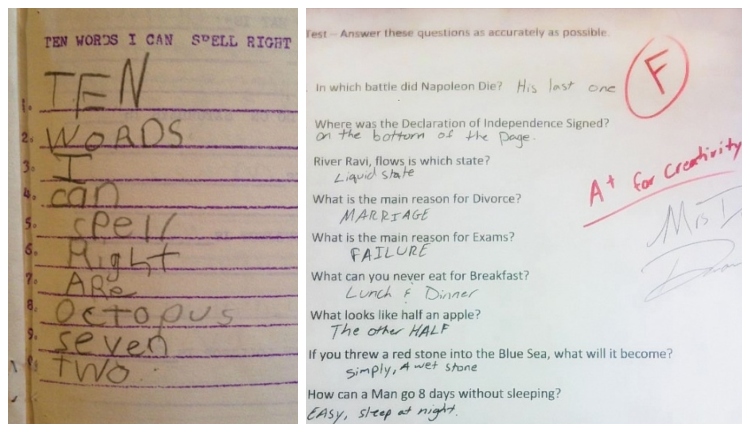 TEN WORDS I CAN SPELL RIGHT
1. TEN
2. WORDS
3. I
4. can
5. spell
6. Right
7. ARe
8. Octopus
9. seven
TWO
Test – Answer these questions as accurately as possible.
F
In which battle did Napoleon Die? His last one
Where was the Declaration of Independence Signed?
on the bottom of the page.
River Ravi, flows is which state?
Liquid state
A+ for Creativity
What is the main reason for Divorce?
MARRIAGE
Mrs
What is the main reason for Exams?
FAILURE
What can you never eat for Breakfast?
Lunch & Dinner
What looks like half an apple?
The other HALF
If you threw a red stone into the Blue Sea, what will it become?
simply, A wet stone
How can a Man go 8 days without sleeping?
EASY, sleep at night.